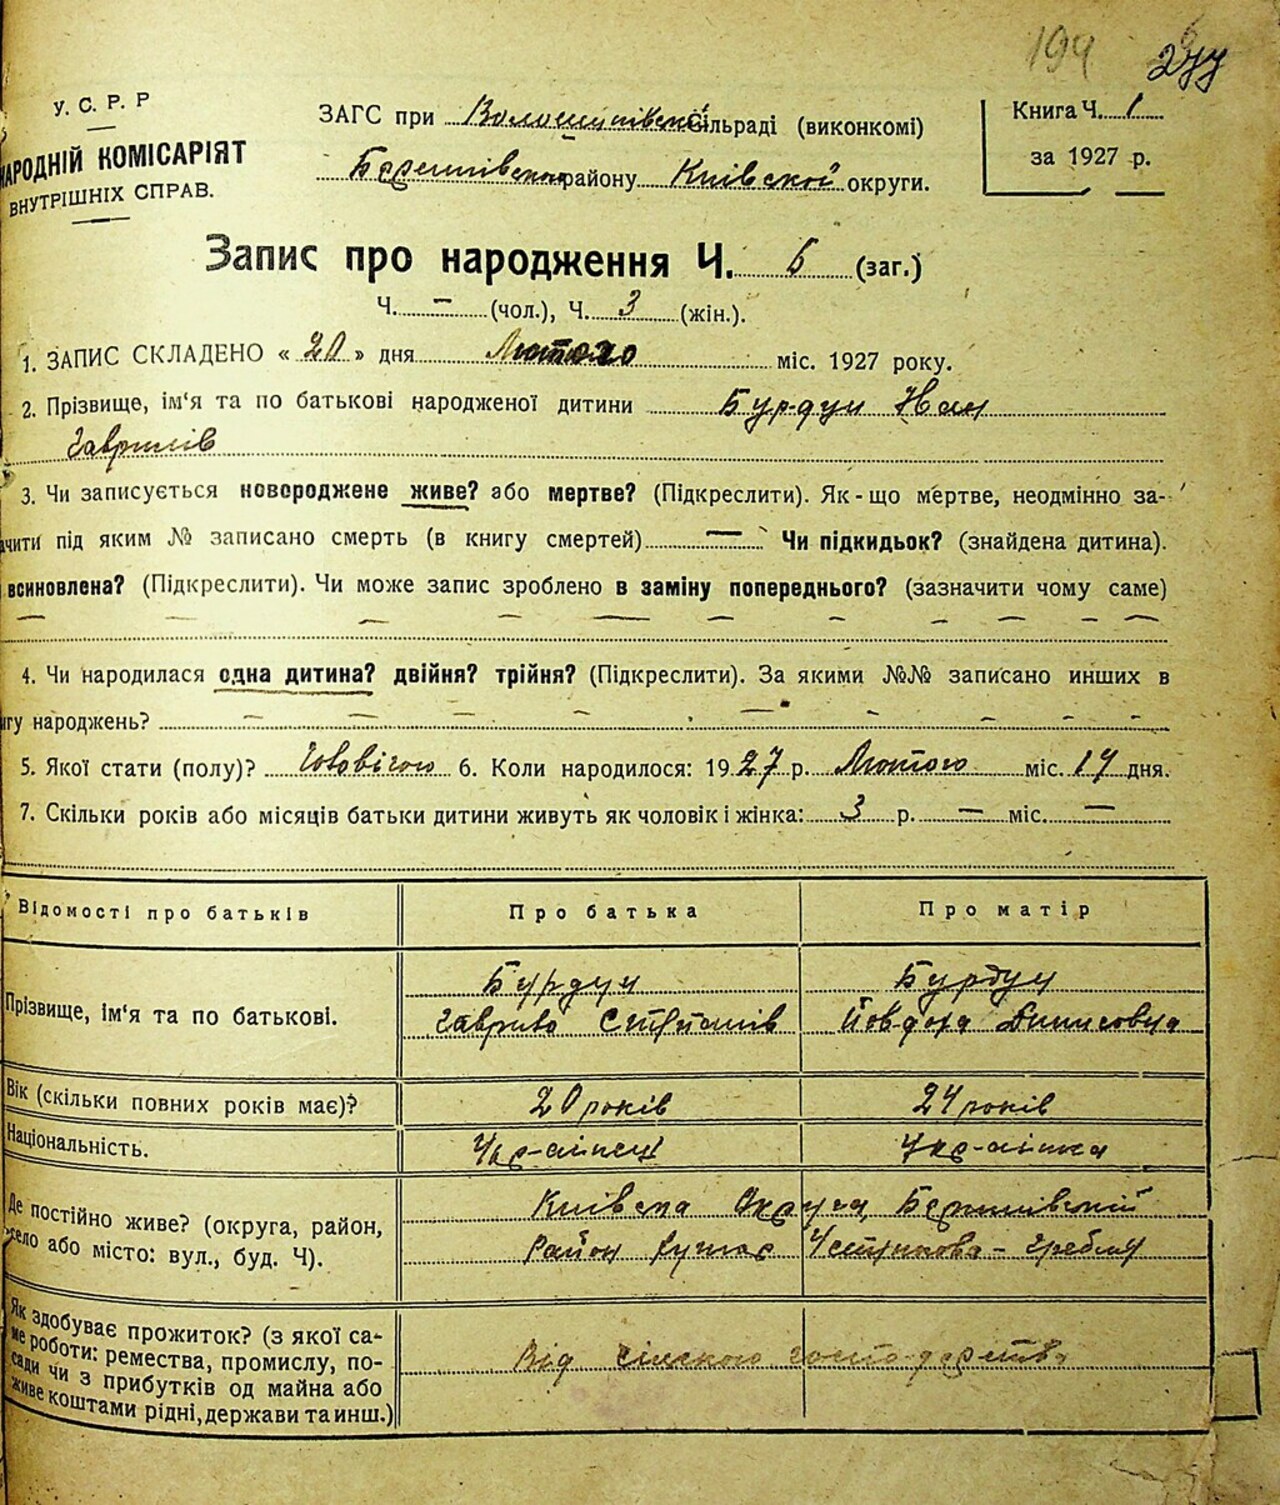 194 277
У. С. Р. Р
НАРОДНІЙ КОМІСАРІЯТ
ВНУТРІШНІХ СПРАВ.
ЗАГС при сільраді (виконкомі)
району Київської округи.
Книга Ч. 1
за 1927 р.
Запис про народження Ч. 6 (заг.)
Ч. — (чол.), Ч. 3 (жін.).
1. ЗАПИС СКЛАДЕНО « 20 » дня Лютого міс. 1927 року.
2. Прізвище, ім‘я та по батькові народженої дитини Бурдун Іван
Гаврилів
3. Чи записується новороджене живе? або мертве? (Підкреслити). Як-що мертве, неодмінно за-
ачити під яким № записано смерть (в книгу смертей) — Чи підкидьок? (знайдена дитина).
всиновлена? (Підкреслити). Чи може запис зроблено в заміну попереднього? (зазначити чому саме)
— — — — — — — — — — —
4. Чи народилася одна дитина? двійня? трійня? (Підкреслити). За якими №№ записано инших в
игу народжень? — — — — — — — — —
5. Якої стати (полу)? 6. Коли народилося: 1927 р. Лютого міс. 14 дня.
7. Скільки років або місяців батьки дитини живуть як чоловік і жінка: 3 р. — міс. —
Відомості про батьків Про батька Про матір
Прізвище, ім‘я та по батькові.
Бурдун Бурдун
Гаврило Йовдоха Динисовна
Вік (скільки повних років має)? 20 років 24 років
Національність. Українець Українка
Де постійно живе? (округа, район,
село або місто: вул., буд. Ч).
Київська Округа,
Район Гребля
Як здобуває прожиток? (з якої са-
ме роботи: ремества, промислу, по-
сади чи з прибутків од майна або
живе коштами рідні, держави та инш.)
Від сільского господарства